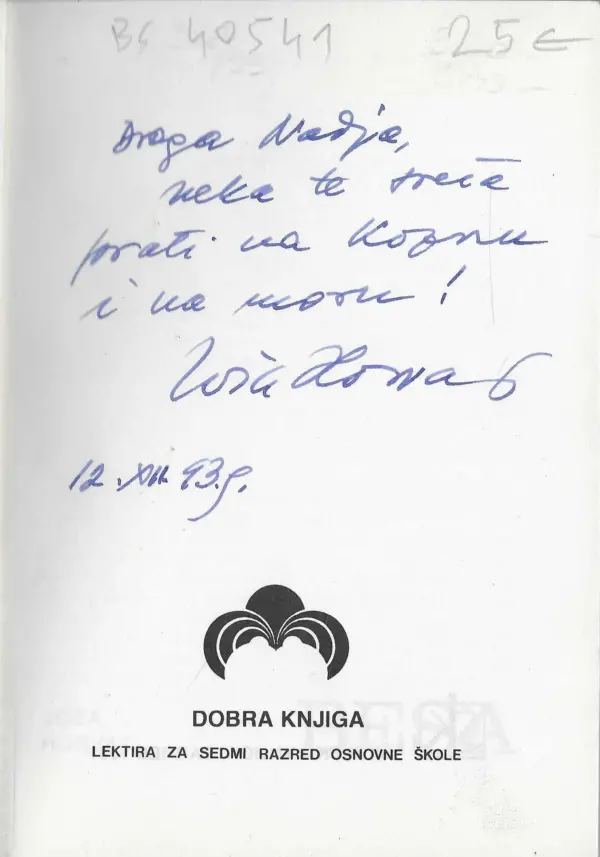 BS 40541 25€
Draga Nadja,
neka te sreća
prati na kopnu
i na moru!
12.XII.93.g.
DOBRA KNJIGA
LEKTIRA ZA SEDMI RAZRED OSNOVNE ŠKOLE